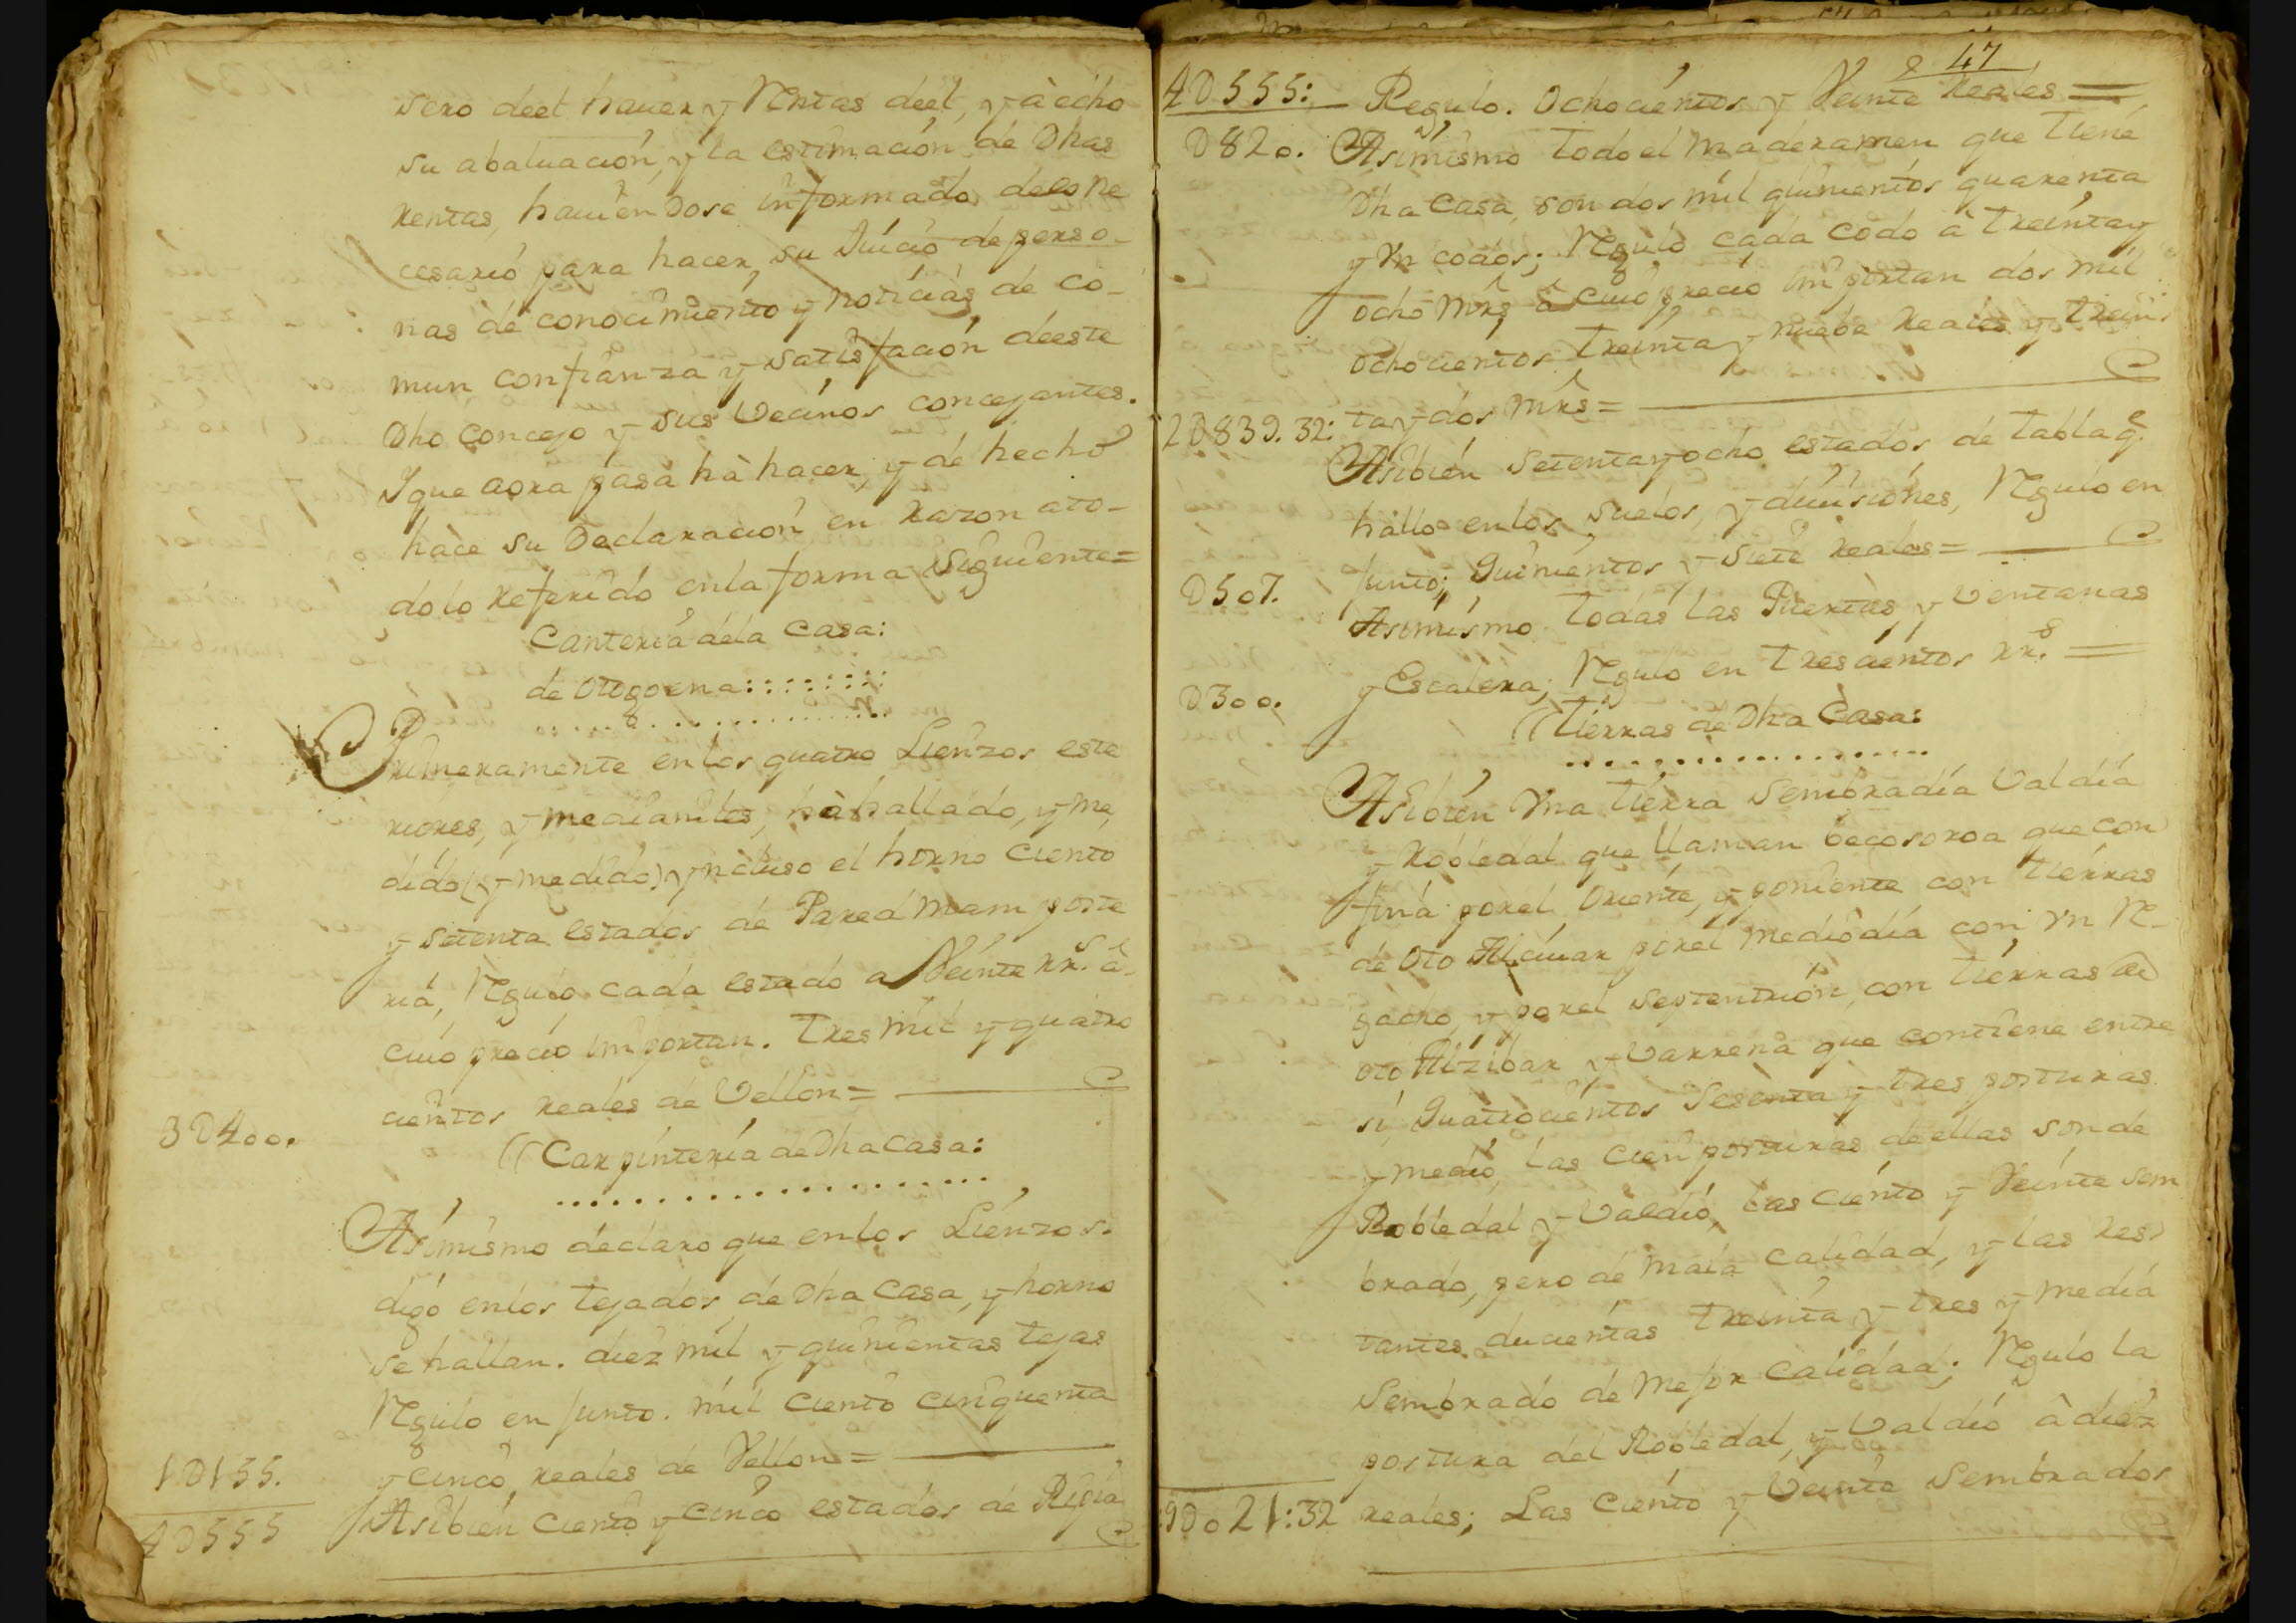 sero deel hauer y Rentas deel, y à echo
su abaluación, y la estimación de Dhas
rentas, hauiendose informado delo Ne
cesario para hacer su Juicio de perso-
nas de conocimiento y noticias de Co-
mun confianza y satisfación deeste
Dho Concejo y sus Vecinos concejantes.
Y que aora pasa hà hacer, y de hecho
hace su Declaracion en Razon ato-
dolo Referido enla forma siguiente=
Canteria dela Casa:
de Otogoena::::::::
Primeramente enlos quatro Lienzos este
riores, y medianiles, hà hallado, y me
dido (y medido) yncluso el horno Ciento
y setenta estados de Pared Mam poste
ria, Regulo cada estado a Veinte rrs. à
cuio precio importan. Tres mil y quatro
3D400. cientos Reales de Vellon=
((Carpinteria de Dha Casa:
Asimismo declaro que enlos Lienzos.
digo enlos tejados de Dha Casa, y horno
se hallan. diez mil y quinientas tejas
Regulo en junto. mil ciento cinquenta
1D155. y cinco reales de Vellon=
4D555 Asibien ciento y cinco estados de Ripia
47
4D555: Regulo. Ochocientos y Veinte Reales=
D820. Asimismo todo el Maderamen que tiene
Dha Casa, son dos mil quinientos quarenta
y Vn codos; Regulo cada codo à treinta y
ocho mrs à cuio precio importan dos mil
ochocientos treinta y nuebe Reales y trein
2D839.32: ta y dos mrs=
Asibien setenta y ocho estados de tabla q.
hallo enlos suelos, y diuisiones, Regulo en
D507. junto; Quinientos y siete Reales=
Asimismo todas las Puertas, y Ventanas
D300. y Escalera; Regulo en trescientos rrs. =
((tierras de Dha Casa:
Asibien Vna tierra Sembradia Valdia
y Robledal que llaman becosoroa que con
fina porel Oriente, y poniente con tierras
de Oto Alciuar porel mediodia con Vn Re-
gacho, y porel septentrion, con tierras de
oto Alzibar y Varrena que contiene entre
si Quatrocientos Sesenta y tres posturas
y medio, las Cien posturas deellas son de
Robledal y Valdio, las ciento y Veinte sem
brado, pero de mala calidad, y las Res
tantes ducientas treinta y tres y media
Sembrado de Mejor calidad; Regulo la
postura del Robledal, y Valdio à diez
:9D021:32 reales; Las Ciento y Veinte Sembrados